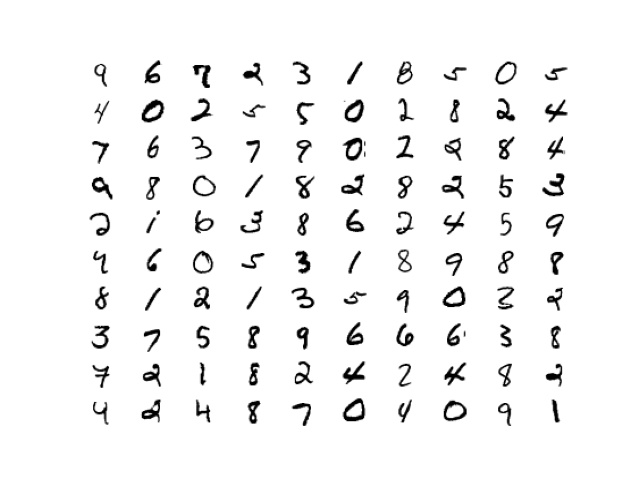 9 6 7 2 3 1 8 5 0 5
4 0 2 5 5 0 2 8 2 4
7 6 3 7 9 0 2 2 8 4
9 8 0 1 8 2 8 2 5 3
2 1 6 3 8 6 2 4 5 9
4 6 0 5 3 1 8 9 8 8
8 1 2 1 3 5 9 0 3 2
3 7 5 8 9 6 6 6 3 8
7 2 1 8 2 4 2 4 8 2
4 2 4 8 7 0 4 0 9 1